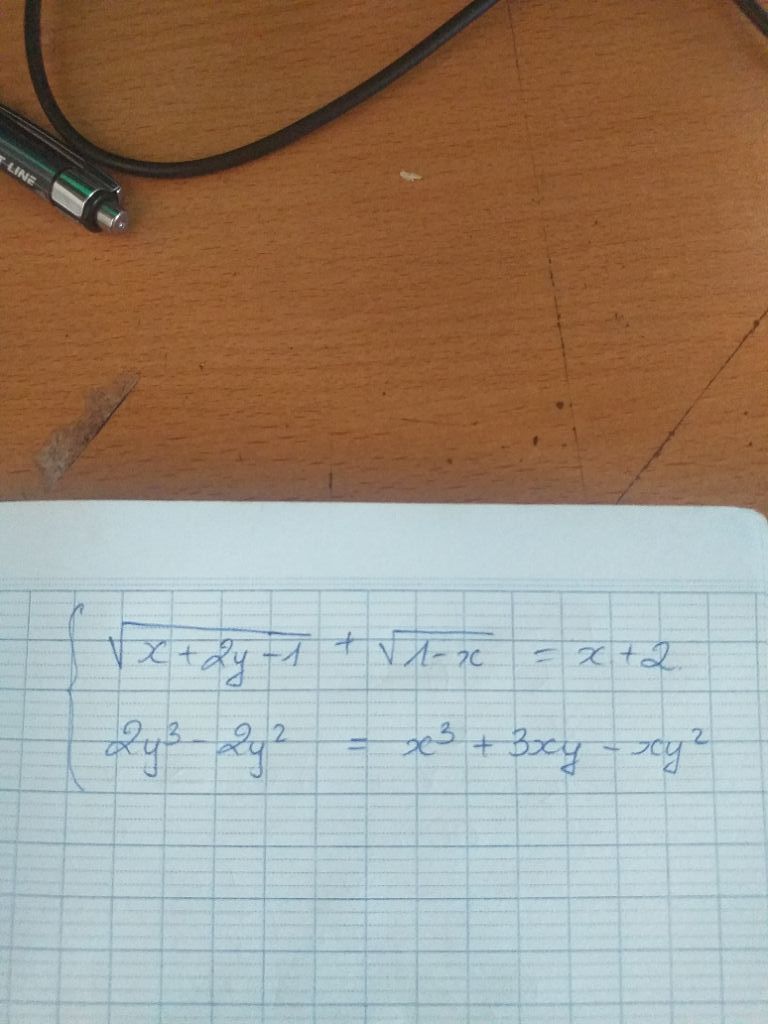 T-LINE
√(x + 2y - 1) + √(1 - x) = x + 2
2y³ - 2y² = x³ + 3xy - xy²